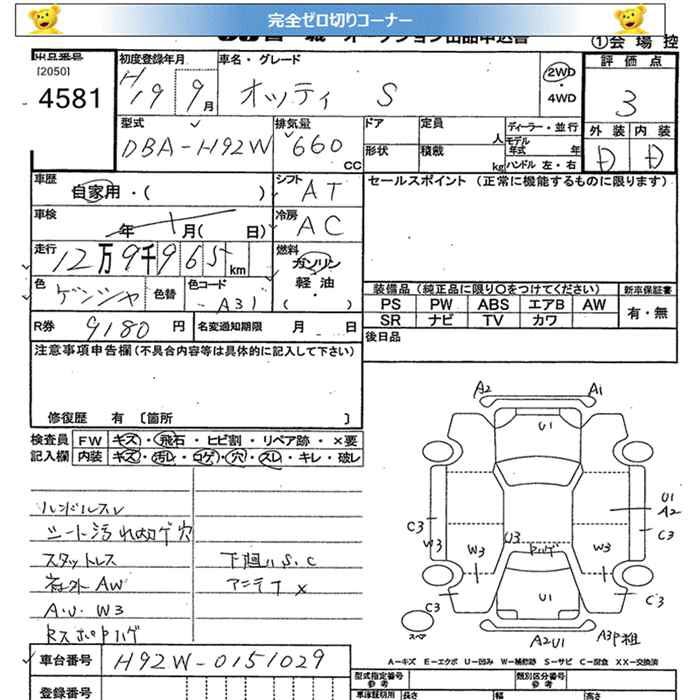 完全ゼロ切りコーナー
オークション出品申込書
①会場控
出品番号
[2050]
4581
初度登録年月
H19 9月
車名・グレード
オッティ S
2WD
4WD
評価点
3
外装 内装
D D
型式
DBA-H92W
排気量
660 CC
ドア
形状
定員 人
積載 kg
ディーラー・並行
モデル年式 年
ハンドル 左・右
車歴
自家用・( )
シフト
AT
セールスポイント (正常に機能するものに限ります)
車検
年 月( 日)
冷房
AC
走行
12万9千965km
燃料
ガソリン
軽油
( )
色
ゲンシャ
色替
色コード
A31
装備品 (純正品に限り○をつけてください)
新車保証書
PS PW ABS エアB AW
SR ナビ TV カワ
有・無
R券
9180 円
名変通知期限 月 日
後日品
注意事項申告欄 (不具合内容等は具体的に記入して下さい)
修復歴 有 〔箇所 〕
検査員 FW キズ・飛石・ヒビ割・リペア跡・×要
記入欄 内装 キズ・汚レ・コゲ・穴・スレ・キレ・破レ
ハンドルスレ
シート汚れコゲ穴
スタットレス
社外AW
A.U. W3
Rスポロハゲ
下廻りS.C
アンテナ×
A2 A1
U1
U1
A2
C3
W3
C3
U3
ロハゲ
W3
W3
C3
C3
U1
A2U1
A3P祖
スペア
A-キズ E-エクボ U-凹み W-補修跡 S-サビ C-腐食 XX-交換済
車台番号
H92W-0151029
登録番号
型式指定番号
参考
類別区分番号
参考
車検証記載 長さ 幅 高さ